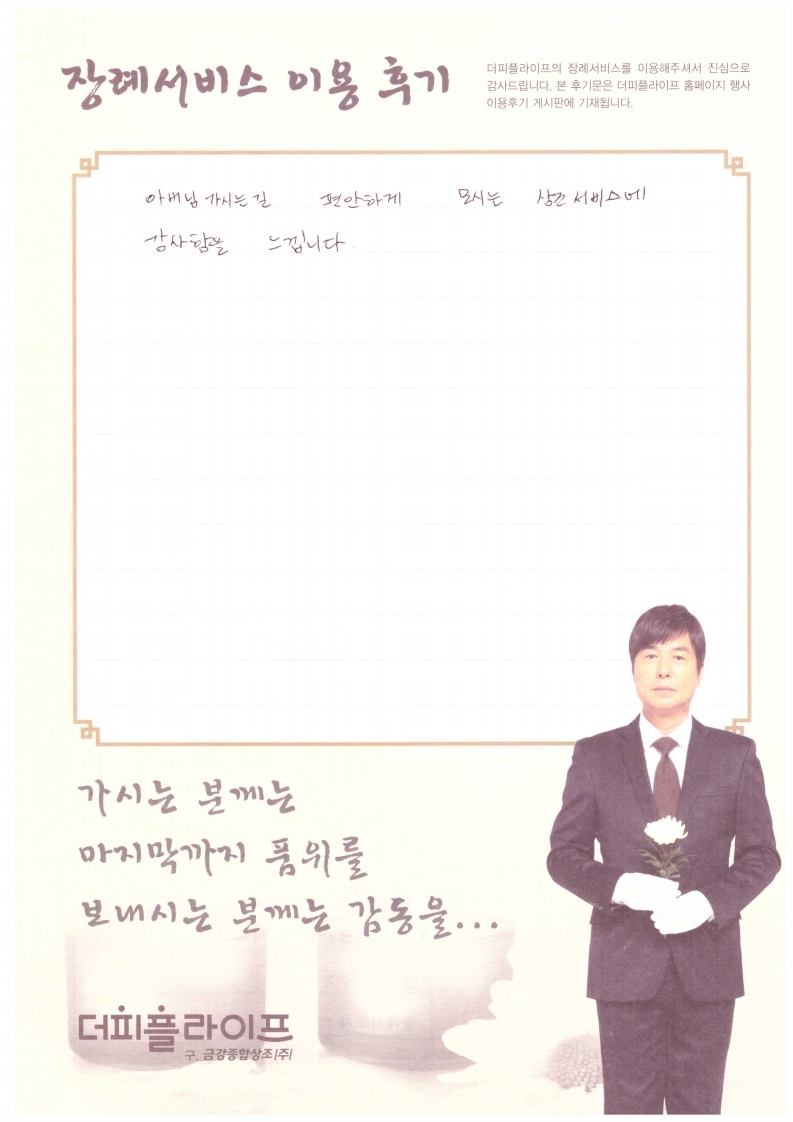 장례서비스 이용 후기
더피플라이프의 장례서비스를 이용해주셔서 진심으로
감사드립니다. 본 후기문은 더피플라이프 홈페이지 행사
이용후기 게시판에 기재됩니다.
아버님 가시는길 편안하게 모시는 상조 서비스에
감사함을 느낍니다.
가시는 분께는
마지막까지 품위를
보내시는 분께는 감동을...
더피플라이프
구. 금강종합상조(주)